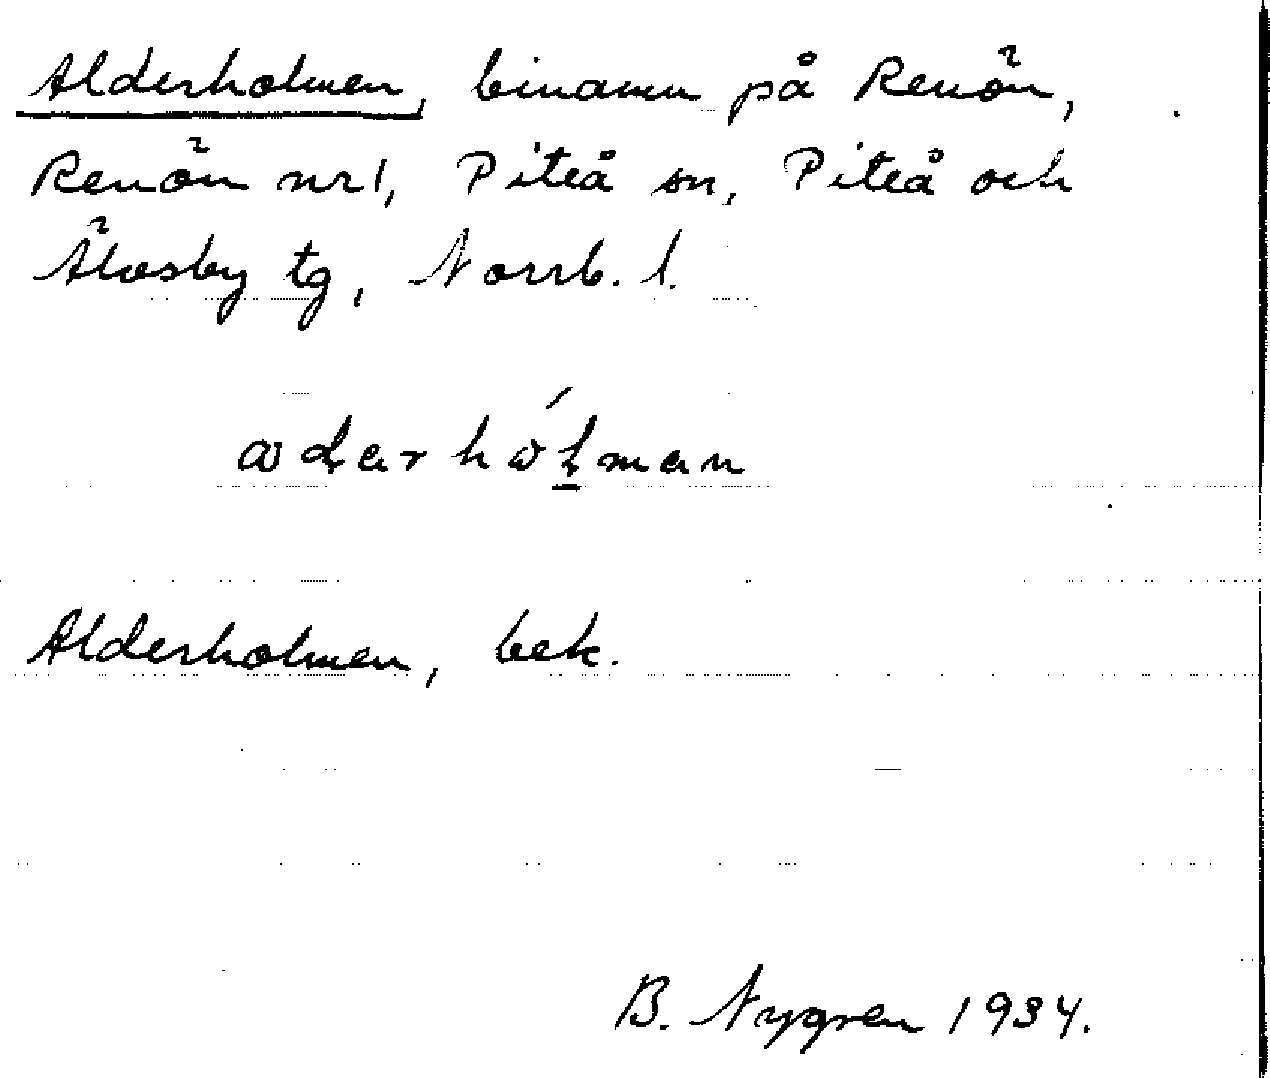 Alderholmen, binamn på Renön,
Renön nr 1, Piteå sn, Piteå och
Älvsby tg, Norrb. l.
Alderholmen, bek.
B. Nygren 1934.